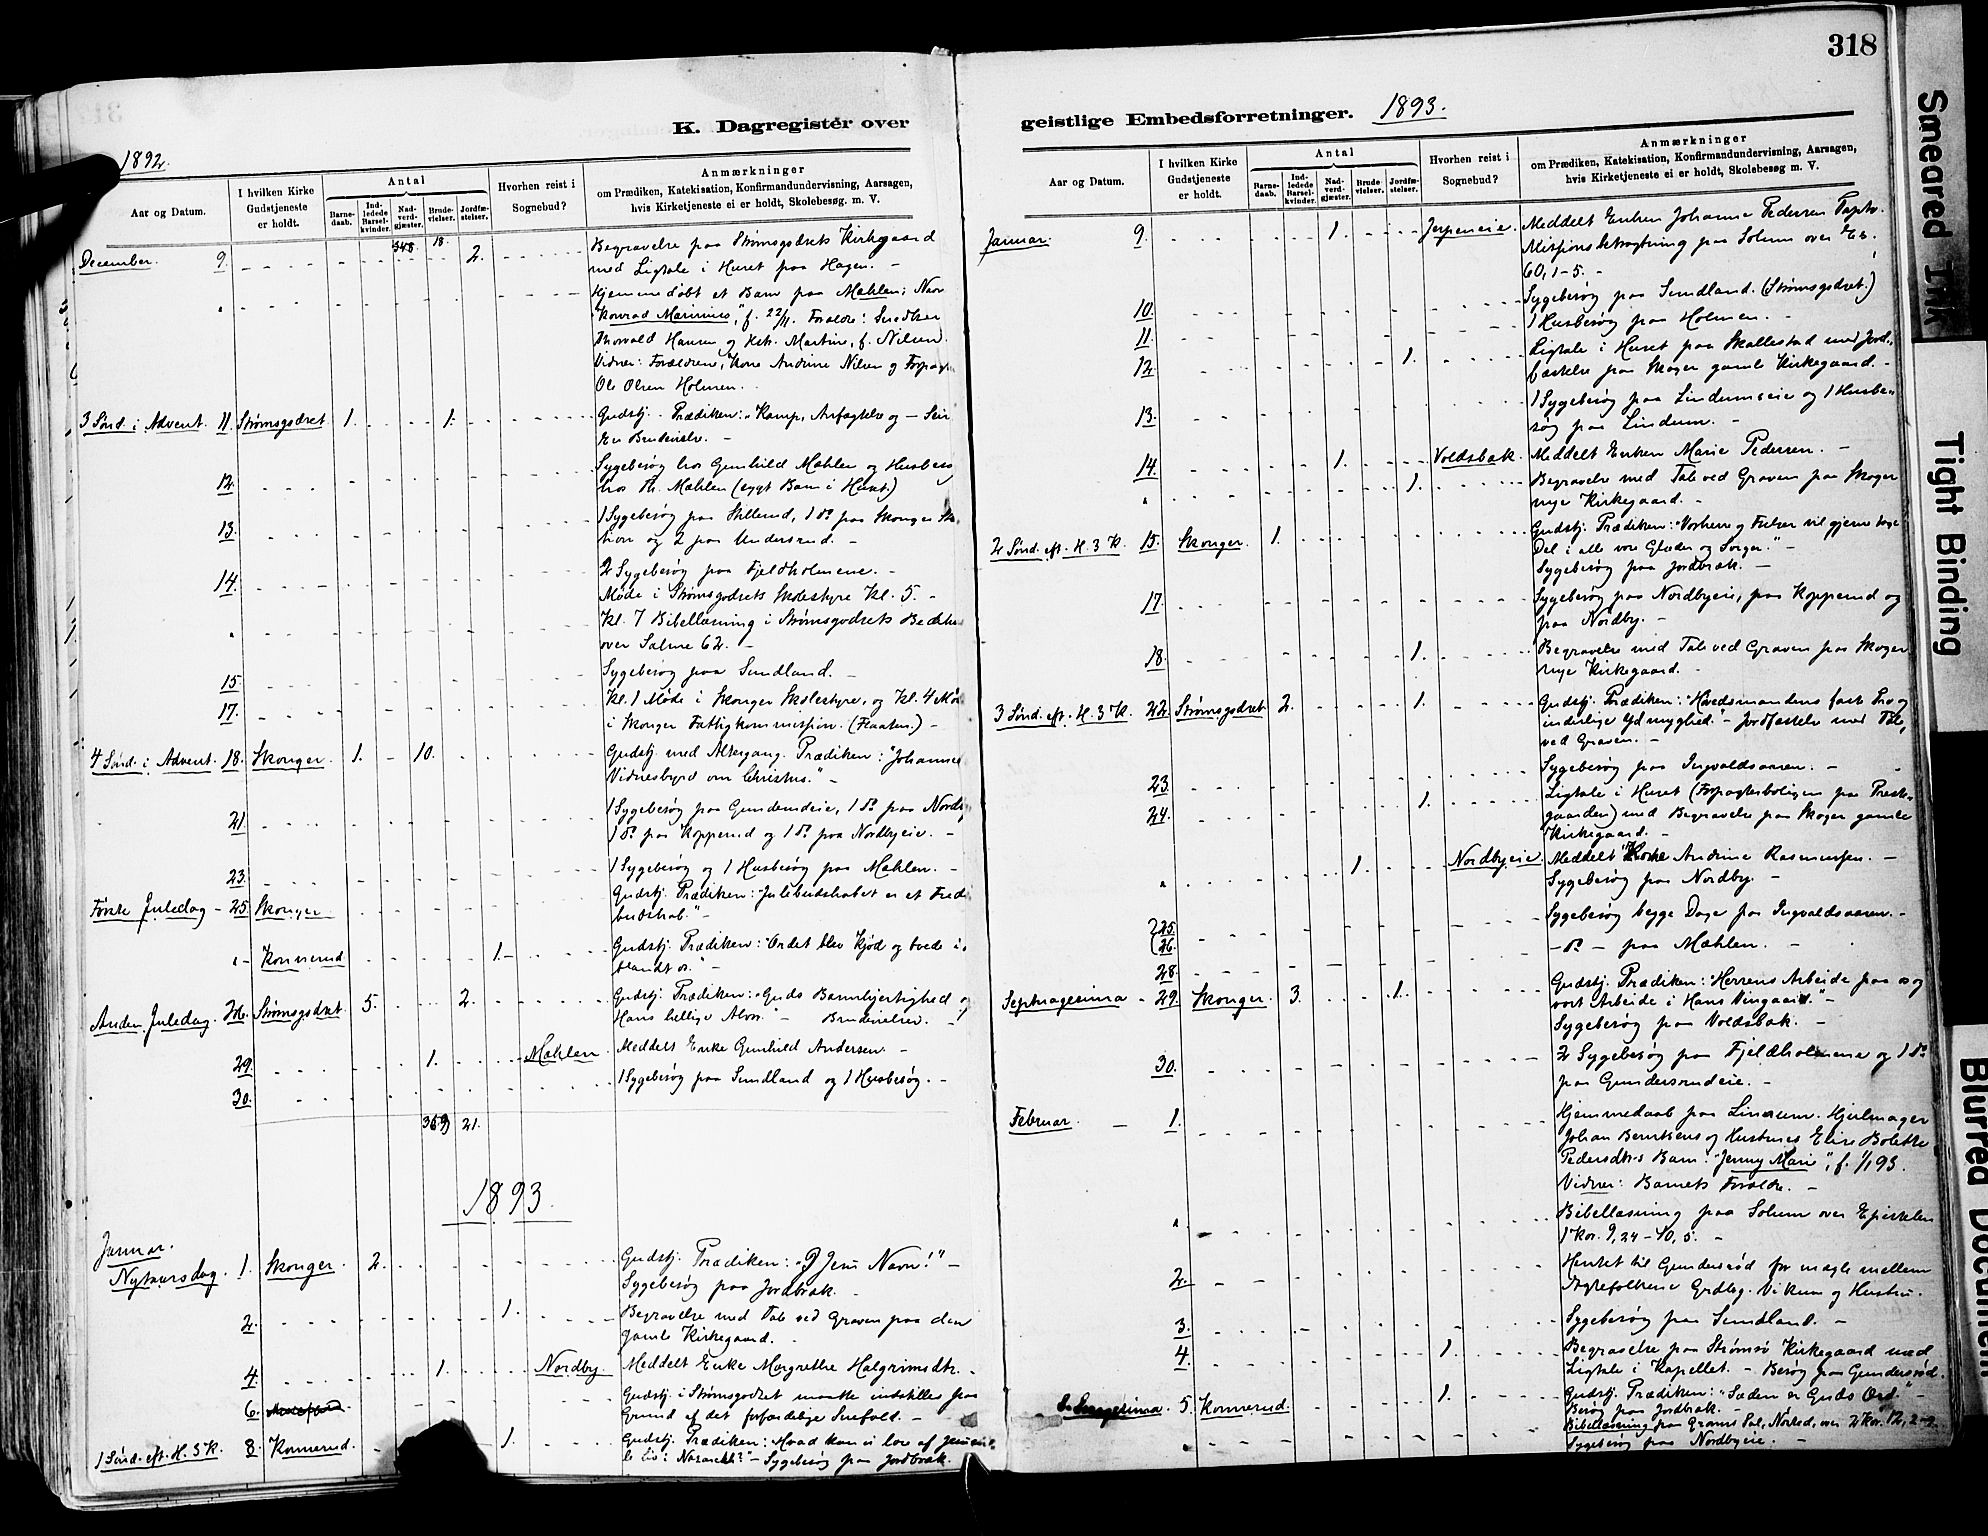 318
K. Dagregister over
1892.
Aar og Datum.
I hvilken Kirke
Gudstjeneste
er holdt.
Antal
Barne-
daab.
Ind-
ledede
Barsel-
kvinder.
Nad-
verd-
gjæster.
Brude-
vielser.
Jordfæ-
stelser.
Hvorhen reist i
Sognebud?
Anmærkninger
om Prædiken, Katekisation, Konfirmandundervisning, Aarsagen,
hvis Kirketjeneste ei er holdt, Skolebesøg. m. V.
348 18.
December. 9. 2. Begravelse paa Strømsgodsets Kirkegaard
med Ligtale i Huset paa Hagen. -
Hjemmedøbt et Barn paa Mæhlen; Navn
"Konrad Marinius", f. 22/11. Forældre: Snedker
Thorvald Hansen og Kst. Martin, f. Nilsen.
Vidner: Forældrene, Kone Andrine Nilsen og
Ole Olsen Holmen.
3 Sønd. i Advent. 11. Strømsgodset 1. 1. Gudstj. Prædiken: "Kamp, Anfægtelse og - Seir
En Brudevielse. -
12. Sygebesøg hos Gunhild Mæhlen og Husbesøg
hos Th. Mæhlen (sygt Barn i Huset.)
13. 1 Sygebesøg paa Stillerud, 1 do paa Skonger
tion og 2 paa Undersrud. -
14. 2 Sygebesøg paa Fjeldholmene. -
Møde i Strømsgodsets Skolestyre Kl. 5. -
Kl. 7 Bibellæsning i Strømsgodsets
over Salme 62. -
15. Sygebesøg paa Sundland. -
17. Kl. 1 Møde i Skonger Skolestyre, og Kl. 4
i Skonger Fattigkommission. (Flaaten.) -
4 Sønd. i Advent. 18. Skonger. 1. 10. Gudstj. med Altergang. Prædiken: "Johannes
Vidnesbyrd om Christus." -
21. 1 Sygebesøg paa Gundersdeie, 1 do paa
1 do paa Kopperud og 1 do paa Nordbyeie. -
23. 1 Sygebesøg og 1 Husbesøg paa Mæhlen. -
Første Juledag - 25. Skonger Gudstj. Prædiken: "Julebudskabet er et
budskab." -
"- Konnerud 1. Gudstj. Prædiken: "Ordet blev Kjød og boede i-
blandt os." -
Anden Juledag. 26. Strømsgodset. 5. 2. Gudstj. Prædiken: "Guds Barmhjertighed og
Hans hellige Alvor." - Brudevielser. -
29. 1. Mæhlen Meddelt Enke Gunhild Andersen. -
30. 1 Sygebesøg paa Sundland og 1 Husbesøg. -
359 21.
1893.
Januar.
Nytaarsdag. 1. Skonger. 2. Gudstj. Prædiken: "I Jesu Navn!" -
Sygebesøg paa Jordbræk. -
2. 1. Begravelse med Tale ved Graven paa den
gamle Kirkegaard. -
4. 1. Nordby. Meddelt Enke Margrethe Halgrimsdtr. -
6. Gudstj. i Strømsgodset maatte indstilles paa
Grund af det forfærdelige Snefald. -
1 Sønd. eft. H. 3 K. 8. Konnerud. 1. Gudstj. Prædiken: "Hvad kan vi lære af
Liv i Nazareth?" - Sygebesøg paa Jordbræk.
geistlige Embedsforretninger. 1893.
Aar og Datum.
I hvilken Kirke
Gudstjeneste
er holdt.
Antal
Barne-
daab.
Ind-
ledede
Barsel-
kvinder.
Nad-
verd-
gjæster.
Brude-
vielser.
Jordfæ-
stelser.
Hvorhen reist i
Sognebud?
Anmærkninger
om Prædiken, Katekisation, Konfirmandundervisning, Aarsagen,
hvis Kirketjeneste ei er holdt, Skolebesøg m. V.
Januar. 9. 1. Jerpeneie. Meddelt Enken Johanne Pedersen
Missionsbetragtning paa Solum over Es.
60, 1-5. -
10. Sygebesøg paa Sundland. (Strømsgodset.)
11. 1 Husbesøg paa Holmen. -
12. 1. Ligtale i Huset paa Skallestad med Jord-
fæstelse paa Skoger gamle Kirkegaard. -
13. 1 Sygebesøg paa Lindumseie og 1 Husbe-
søg paa Lindum. -
14. 1. Voldsbæk. Meddelt Enken Marie Pedersen. -
" 1. Begravelse med Tale ved Graven paa Skoger
nye Kirkegaard. -
2 Sønd. eft. H. 3 K. 15. Skonger. 1. Gudstj. Prædiken: "Vorherre og Frelser vil gjerne tage
Del i alle vore Glæder og Sorger." -
Sygebesøg paa Jordbræk. -
17. Sygebesøg paa Nordbyeie, paa Kopperud og
paa Nordby. -
18. 1. Begravelse med Tale ved Graven paa Skoger
nye Kirkegaard. -
3 Sønd. eft. H. 3 K. 22. Strømsgodset 2. 1. Gudstj. Prædiken: "Høvedsmandens faste Tro og
inderlige Ydmyghed." - Jordfæstelse med Tale
ved Graven. -
23. Sygebesøg paa Ingvaldsaasen. -
24. 1. Ligtale i Huset (Forpagterboligen paa Præste-
gaarden) med Begravelse paa Skoger gamle
Kirkegaard. -
" 1. Nordbyeie. Meddelt Kone Andrine Rasmussen. -
Sygebesøg paa Nordby. -
25.
26. Sygebesøg begge Dage paa Ingvaldsaasen. -
28. - do - paa Mæhlen. -
Septuagesima - 29. Skonger. 3. 1. Gudstj. Prædiken: "Herrens Arbeide paa os og
vort Arbeide i Hans Vingaard." -
Sygebesøg paa Voldsbæk. -
30. 2 Sygebesøg paa Fjeldholmene og 1 do
paa Gundersrudeie. -
Februar. - 1. Hjemmedaab paa Lindum. Hjulmager
Johan Berntsens og Hustrues Elise Bolette
Pedersdtr.s Barn: "Jenny Marie", f. 1/1 93.
Vidner: Barnets Forældre. -
" Bibellæsning paa Solum over Epistelen
1 Kor. 9, 24 - 10, 5. -
2. Hentet til Gundersrød for mægle mellem
Ægtefolkene Grdbg. Vikum og Hustru.
3. Sygebesøg paa Sundland. -
4. 1. Begravelse paa Strømsø Kirkegaard med
Ligtale i Kapellet. - Besøg paa Gundersrød.
5. Konnerud. 1. Gudstj. Prædiken: "Sæden er Guds Ord." -
Besøg paa Jordbræk. -
Bibellæsning paa Grams Sal, Norked, over 2 Kor. 12, 2-9
Sygebesøg paa Nordbyeie. -
Smeared Ink
Tight Binding
Blurred Document